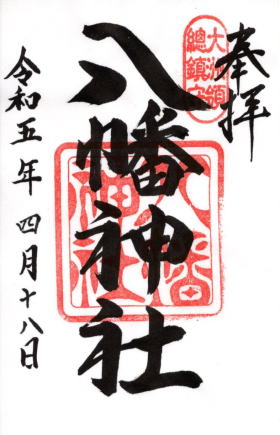 奉拝
大洲領
總鎮守
八幡神社
八幡
神社
令和五年四月十八日